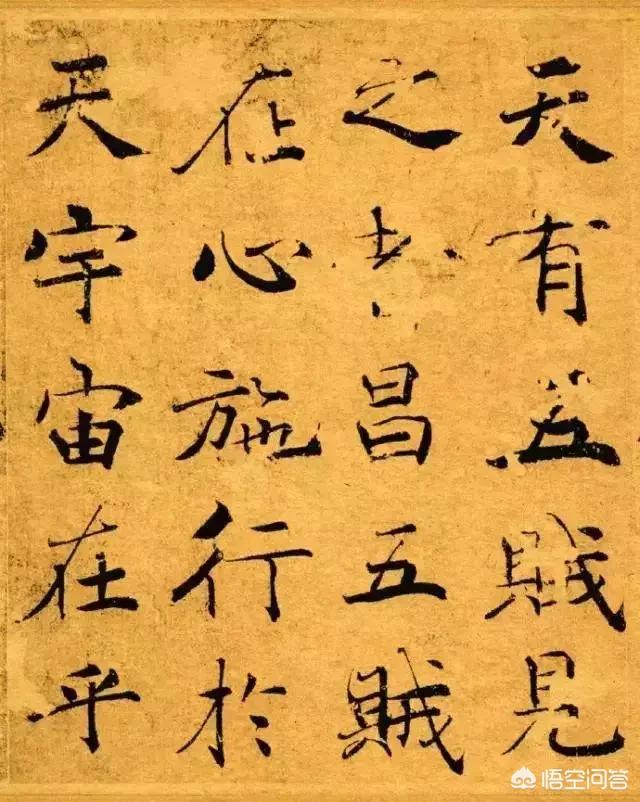 天有五賊見
之者昌五賊
在心施行於
天宇宙在乎
悟空问答